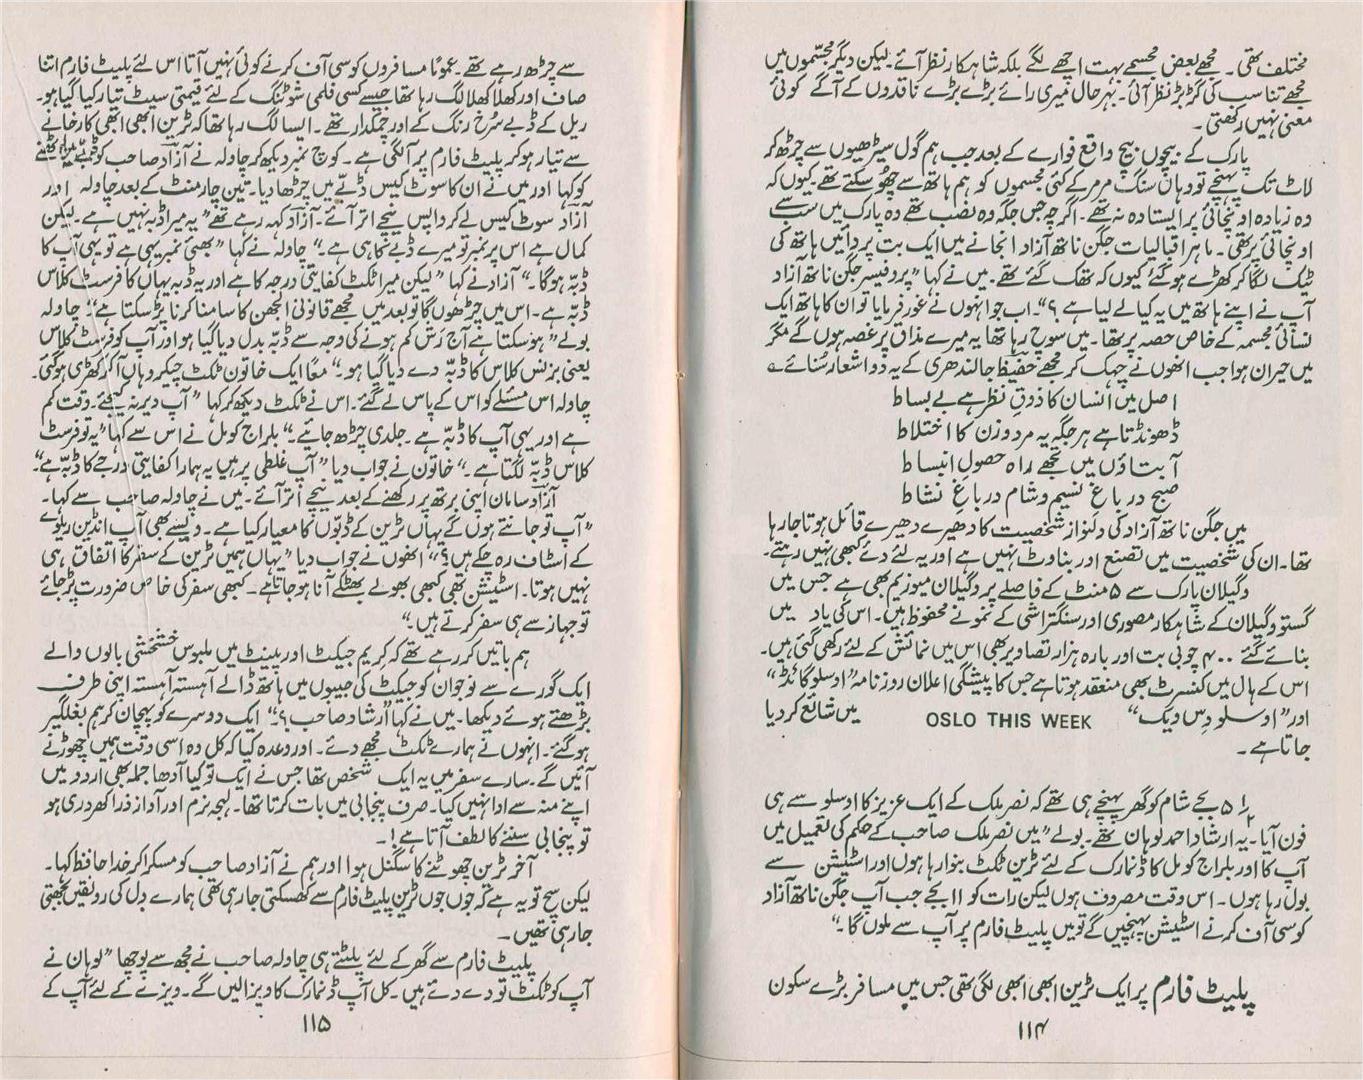 مختلف تھی۔ مجھے بعض مجسمے بہت اچھے لگے بلکہ شاہکار نظر آئے۔ لیکن دیگر مجسّموں میں
مجھے تناسب کی گڑبڑ نظر آئی۔ بہر حال میری رائے بڑے بڑے ناقدوں کے آگے کوئی
معنی نہیں رکھتی۔
پارک کے بیچوں بیچ واقع فوارے کے بعد جب ہم گول سیڑھیوں سے چڑھ کر
لاٹ تک پہنچے تو وہاں سنگ مرمر کے کئی مجسموں کو ہم ہاتھ سے چھُو سکتے تھے۔ کیوں کہ
وہ زیادہ اونچائی پر ایستادہ نہ تھے۔ اگرچہ جس جگہ وہ نصب تھے وہ پارک میں سب سے
اونچائی پر تھی۔ ماہر اقبالیات جگن ناتھ آزاد انجانے میں ایک بت پر دائیں ہاتھ کی
ٹیک لگا کر کھڑے ہو گئے کیوں کہ تھک گئے تھے۔ میں نے کہا "پروفیسر جگن ناتھ آزاد
آپ نے اپنے ہاتھ میں یہ کیا لے لیا ہے؟"۔ اب جو انہوں نے غور فرمایا تو ان کا ہاتھ ایک
نسائی مجسمہ کے خاص حصہ پر تھا۔ میں سوچ رہا تھا یہ میرے مذاق پر غصہ ہوں گے مگر
میں حیران ہوا جب انھوں نے چہک کر مجھے حفیظ جالندھری کے یہ دو اشعار سُنائے؎
اصل میں انسان کا ذوقِ نظر ہے بے بساط
ڈھونڈتا ہے ہر جگہ یہ مرد و زن کا اختلاط
آ بتاؤں میں تجھے راہ حصولِ انبساط
صبح در باغِ نسیم و شام در باغِ نشاط
میں جگن ناتھ آزاد کی دلنواز شخصیت کا دھیرے دھیرے قائل ہوتا جا رہا
تھا۔ ان کی شخصیت میں تصنع اور بناوٹ نہیں ہے اور یہ لئے دئے کبھی نہیں رہتے۔
وگیلان پارک سے ۵ منٹ کے فاصلے پر وگیلان میوزیم بھی ہے جس میں
گستو وگیلان کے شاہکار مصوری اور سنگتراشی کے نمونے محفوظ ہیں۔ اس کی یاد میں
بنائے گئے ۴۰۰ چوبی بت اور بارہ ہزار تصاویر بھی اس میں نمائش کے لئے رکھی گئی ہیں۔
اس کے ہال میں کنسرٹ بھی منعقد ہوتا ہے جس کا پیشگی اعلان روزنامہ "اوسلو گائڈ"
اور "اوسلو دِس ویک" OSLO THIS WEEK میں شائع کر دیا
جاتا ہے۔
۵ ۱/۲ بجے شام کو گھر پہنچے ہی تھے کہ نصر ملک کے ایک عزیز کا اوسلو سے ہی
فون آیا۔ یہ ارشاد احمد لوہان تھے۔ بولے "میں نصر ملک صاحب کے حکم کی تعمیل میں
آپ کا اور بلراج کومل کا ڈنمارک کے لئے ٹرین ٹکٹ بنوا رہا ہوں اور اسٹیشن سے
بول رہا ہوں۔ اس وقت مصروف ہوں لیکن رات کو ۱۱ بجے جب آپ جگن ناتھ آزاد
کو سی آف کرنے اسٹیشن پہنچیں گے تو میں پلیٹ فارم پر آپ سے ملوں گا۔"
پلیٹ فارم پر ایک ٹرین ابھی ابھی لگی تھی جس میں مسافر بڑے سکون
۱۱۴
سے چڑھ رہے تھے۔ عموماً مسافروں کو سی آف کرنے کوئی نہیں آتا اس لئے پلیٹ فارم اتنا
صاف اور کھلا کھلا لگ رہا تھا جیسے کسی فلمی شوٹنگ کے لئے قیمتی سیٹ تیار کیا گیا ہو۔
ریل کے ڈبے سُرخ رنگ کے اور چمکدار تھے۔ ایسا لگ رہا تھا کہ ٹرین ابھی ابھی کارخانے
سے تیار ہو کر پلیٹ فارم پر آ لگی ہے۔ کوچ نمبر دیکھ کر چاولہ نے آزاد صاحب کو ڈبے میں چڑھنے
کو کہا اور میں نے ان کا سوٹ کیس ڈبّے میں چڑھا دیا۔ تین چار منٹ کے بعد چاولہ اور
آزاد سوٹ کیس لے کر واپس نیچے اتر آئے۔ آزاد کہہ رہے تھے "یہ میرا ڈبہ نہیں ہے۔ لیکن
کمال ہے اس پر نمبر تو میرے ڈبے کا ہی ہے۔" چاولہ نے کہا "بھئی نمبر یہی ہے تو یہی آپ کا
ڈبّہ ہوگا۔" آزاد نے کہا "لیکن میرا ٹکٹ کفایتی درجہ کا ہے اور یہ ڈبہ یہاں کا فرسٹ کلاس
ڈبّہ ہے۔ اس میں چڑھوں گا تو بعد میں مجھے قانونی الجھن کا سامنا کرنا پڑ سکتا ہے"۔ چاولہ
بولے "ہو سکتا ہے آج رَش کم ہونے کی وجہ سے ڈبّہ بدل دیا گیا ہو اور آپ کو فرسٹ کلاس
یعنی بزنس کلاس کا ڈبّہ دے دیا گیا ہو۔" معاً ایک خاتون ٹکٹ چیکر وہاں آ کر کھڑی ہو گئی۔
چاولہ اس مسئلے کو اس کے پاس لے گئے۔ اس نے ٹکٹ دیکھ کر کہا "آپ دیر نہ کیجئے۔ وقت کم
ہے اور یہی آپ کا ڈبّہ ہے۔ جلدی چڑھ جائیے۔" بلراج کومل نے اس سے کہا "یہ تو فرسٹ
کلاس ڈبّہ لگتا ہے۔" خاتون نے جواب دیا "آپ غلطی پر ہیں یہ ہمارا کفایتی درجے کا ڈبّہ ہے"۔
آزاد سامان اپنی برتھ پر رکھنے کے بعد نیچے اُتر آئے۔ میں نے چاولہ صاحب سے کہا۔
"آپ تو جانتے ہوں گے یہاں ٹرین کے ڈبّوں کا معیار کیا ہے۔ ویسے بھی آپ انڈین ریلوے
کے اسٹاف رہ چکے ہیں؟" انھوں نے جواب دیا "یہاں ہمیں ٹرین کے سفر کا اتفاق ہی
نہیں ہوتا۔ اسٹیشن بھی کبھی بھولے بھٹکے آنا ہو جاتا ہے۔ کبھی سفر کی خاص ضرورت پڑ جائے
تو جہاز سے ہی سفر کرتے ہیں۔"
ہم باتیں کر رہے تھے کہ کریم جیکٹ اور پینٹ میں ملبوس خشخشی بالوں والے
ایک گورے سے نوجوان کو جیکٹ کی جیبوں میں ہاتھ ڈالے آہستہ آہستہ اپنی طرف
بڑھتے ہوئے دیکھا۔ میں نے کہا "ارشاد صاحب؟"۔ ایک دوسرے کو پہچان کر ہم بغلگیر
ہو گئے۔ انہوں نے ہمارے ٹکٹ مجھے دئے۔ اور وعدہ کیا کہ کل وہ اسی وقت ہمیں چھوڑنے
آئیں گے۔ سارے سفر میں یہ ایک شخص تھا جس نے ایک تو کیا آدھا جملہ بھی اردو میں
اپنے منہ سے ادا نہیں کیا۔ صرف پنجابی میں بات کرتا تھا۔ لہجہ نرم اور آواز ذرا کھردری ہو
تو پنجابی سننے کا لطف آتا ہے!۔
آخر ٹرین چھوٹنے کا سگنل ہوا اور ہم نے آزاد صاحب کو مسکرا کر خدا حافظ کہا۔
لیکن سچ تو یہ ہے کہ جوں جوں ٹرین پلیٹ فارم سے کھسکتی جا رہی تھی ہمارے دِل کی رونقیں بجھتی
جا رہی تھیں۔
پلیٹ فارم سے گھر کے لئے پلٹتے ہی چاولہ صاحب نے مجھ سے پوچھا "لوہان نے
آپ کو ٹکٹ تو دے دئے ہیں۔ کل آپ ڈنمارک کا ویزا لیں گے۔ ویزے کے لئے آپ کے
۱۱۵